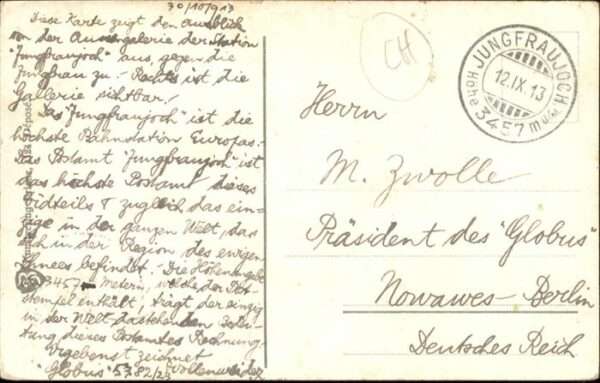 30/10/913
Diese Karte zeigt den Ausblick
von der Aussengalerie der Station
"Jungfraujoch" aus, gegen die
Jungfrau zu. - Rechts ist die
Gallerie sichtbar.
Das "Jungfraujoch" ist die
höchste Bahnstation Europas.
Das Postamt "Jungfraujoch" ist
das höchste Postamt dieses
Erdteils & zugleich das ein-
zige in der ganzen Welt, das
sich in der Region des ewigen
Schnees befindet. Die Höhenangabe
3457 Metern, welche der Post-
stempel enthält, trägt der einzig
in der Welt dastehenden Bedeu-
tung dieses Postamtes Rechnung.
Ergebenst zeichnet
"Globus" 5382/23
CH
JUNGFRAUJOCH
12.IX.13
Höhe 3457 m ü. M.
Herrn
M. Zwolle
Präsident des "Globus"
Nowawes-Berlin
Deutsches Reich